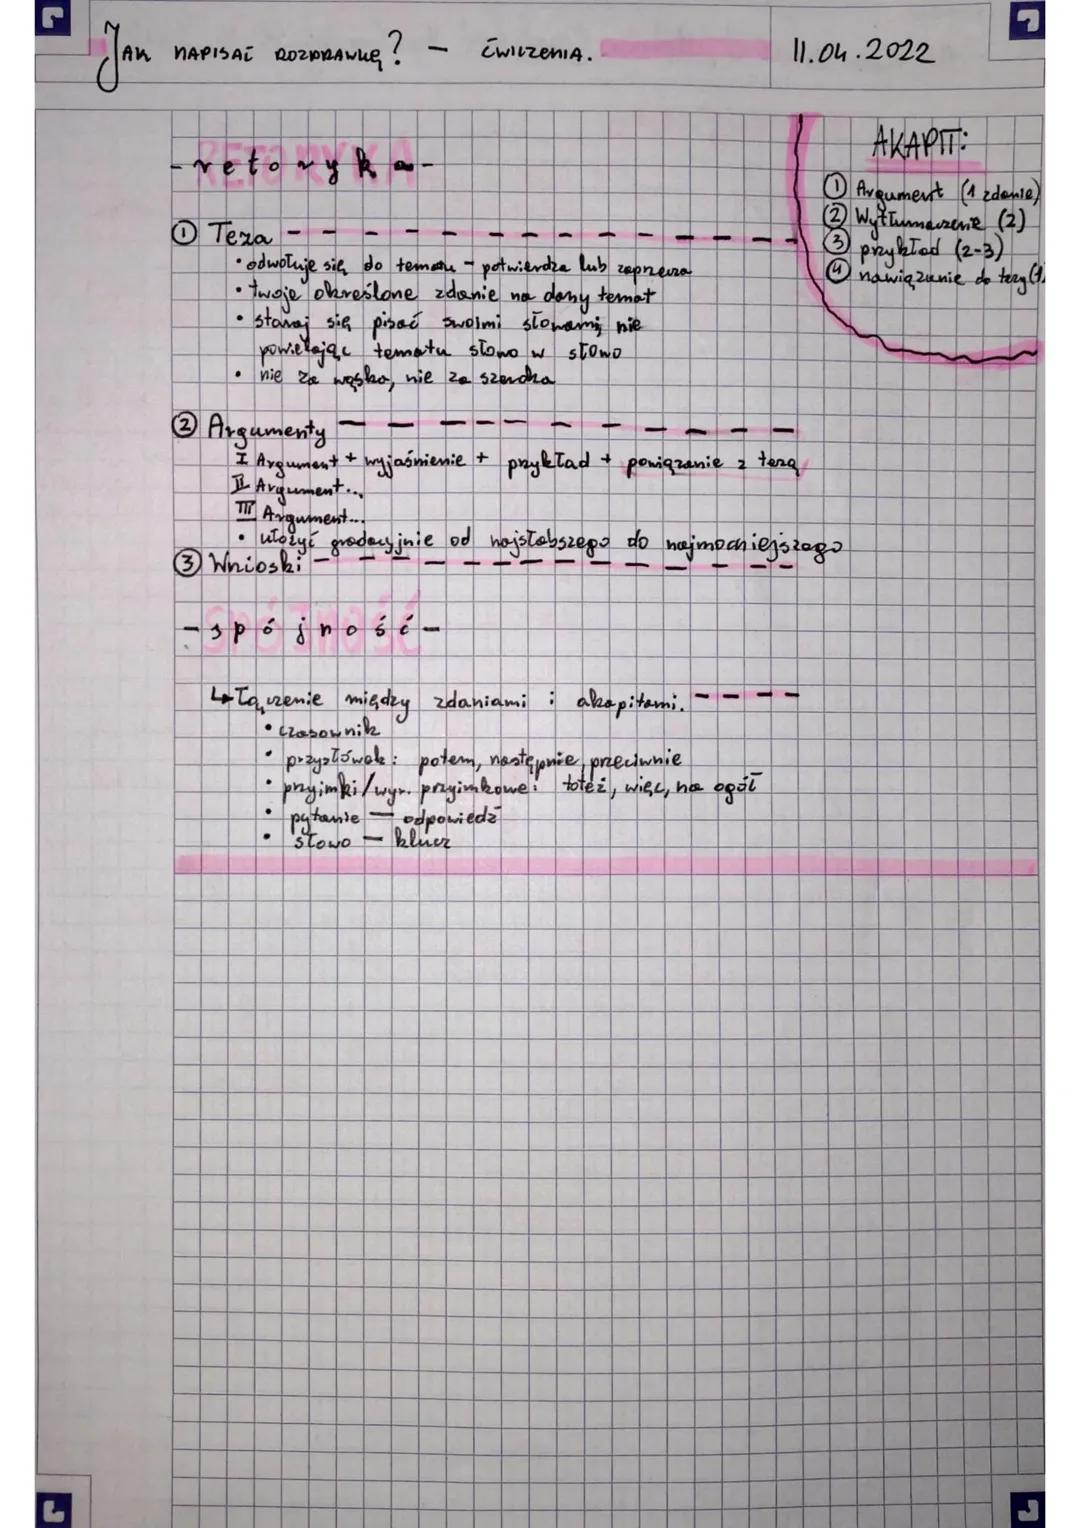 JAK NAPISAĆ ROZPRAWKĘ? – ĆWICZENIA.
11.04.2022
RETORYKA
- retoryka -
AKAPIT:
① Argument (1 zdanie)
② Wytłumaczenie (2)
③ przykład (2-3)
④ nawiązanie do tezy (1
① Teza
• odwołuje się do tematu – potwierdza lub zaprzecza
• twoje określone zdanie na dany temat
• staraj się pisać swoimi słowami, nie
powielając tematu słowo w słowo
• nie za wąsko, nie za szeroka
② Argumenty
I Argument + wyjaśnienie + przykład + powiązanie z tezą
II Argument...
III Argument...
• ułożyć gradacyjnie od najsłabszego do najmocniejszego
③ Wnioski
SPÓJNOŚĆ
- spójność -
↳ Łączenie między zdaniami i akapitami.
• czasownik
• przysłówek: potem, następnie, przeciwnie
• przyimki/wyr. przyimkowe: toteż, więc, na ogół
• pytanie — odpowiedź
• słowo — klucz